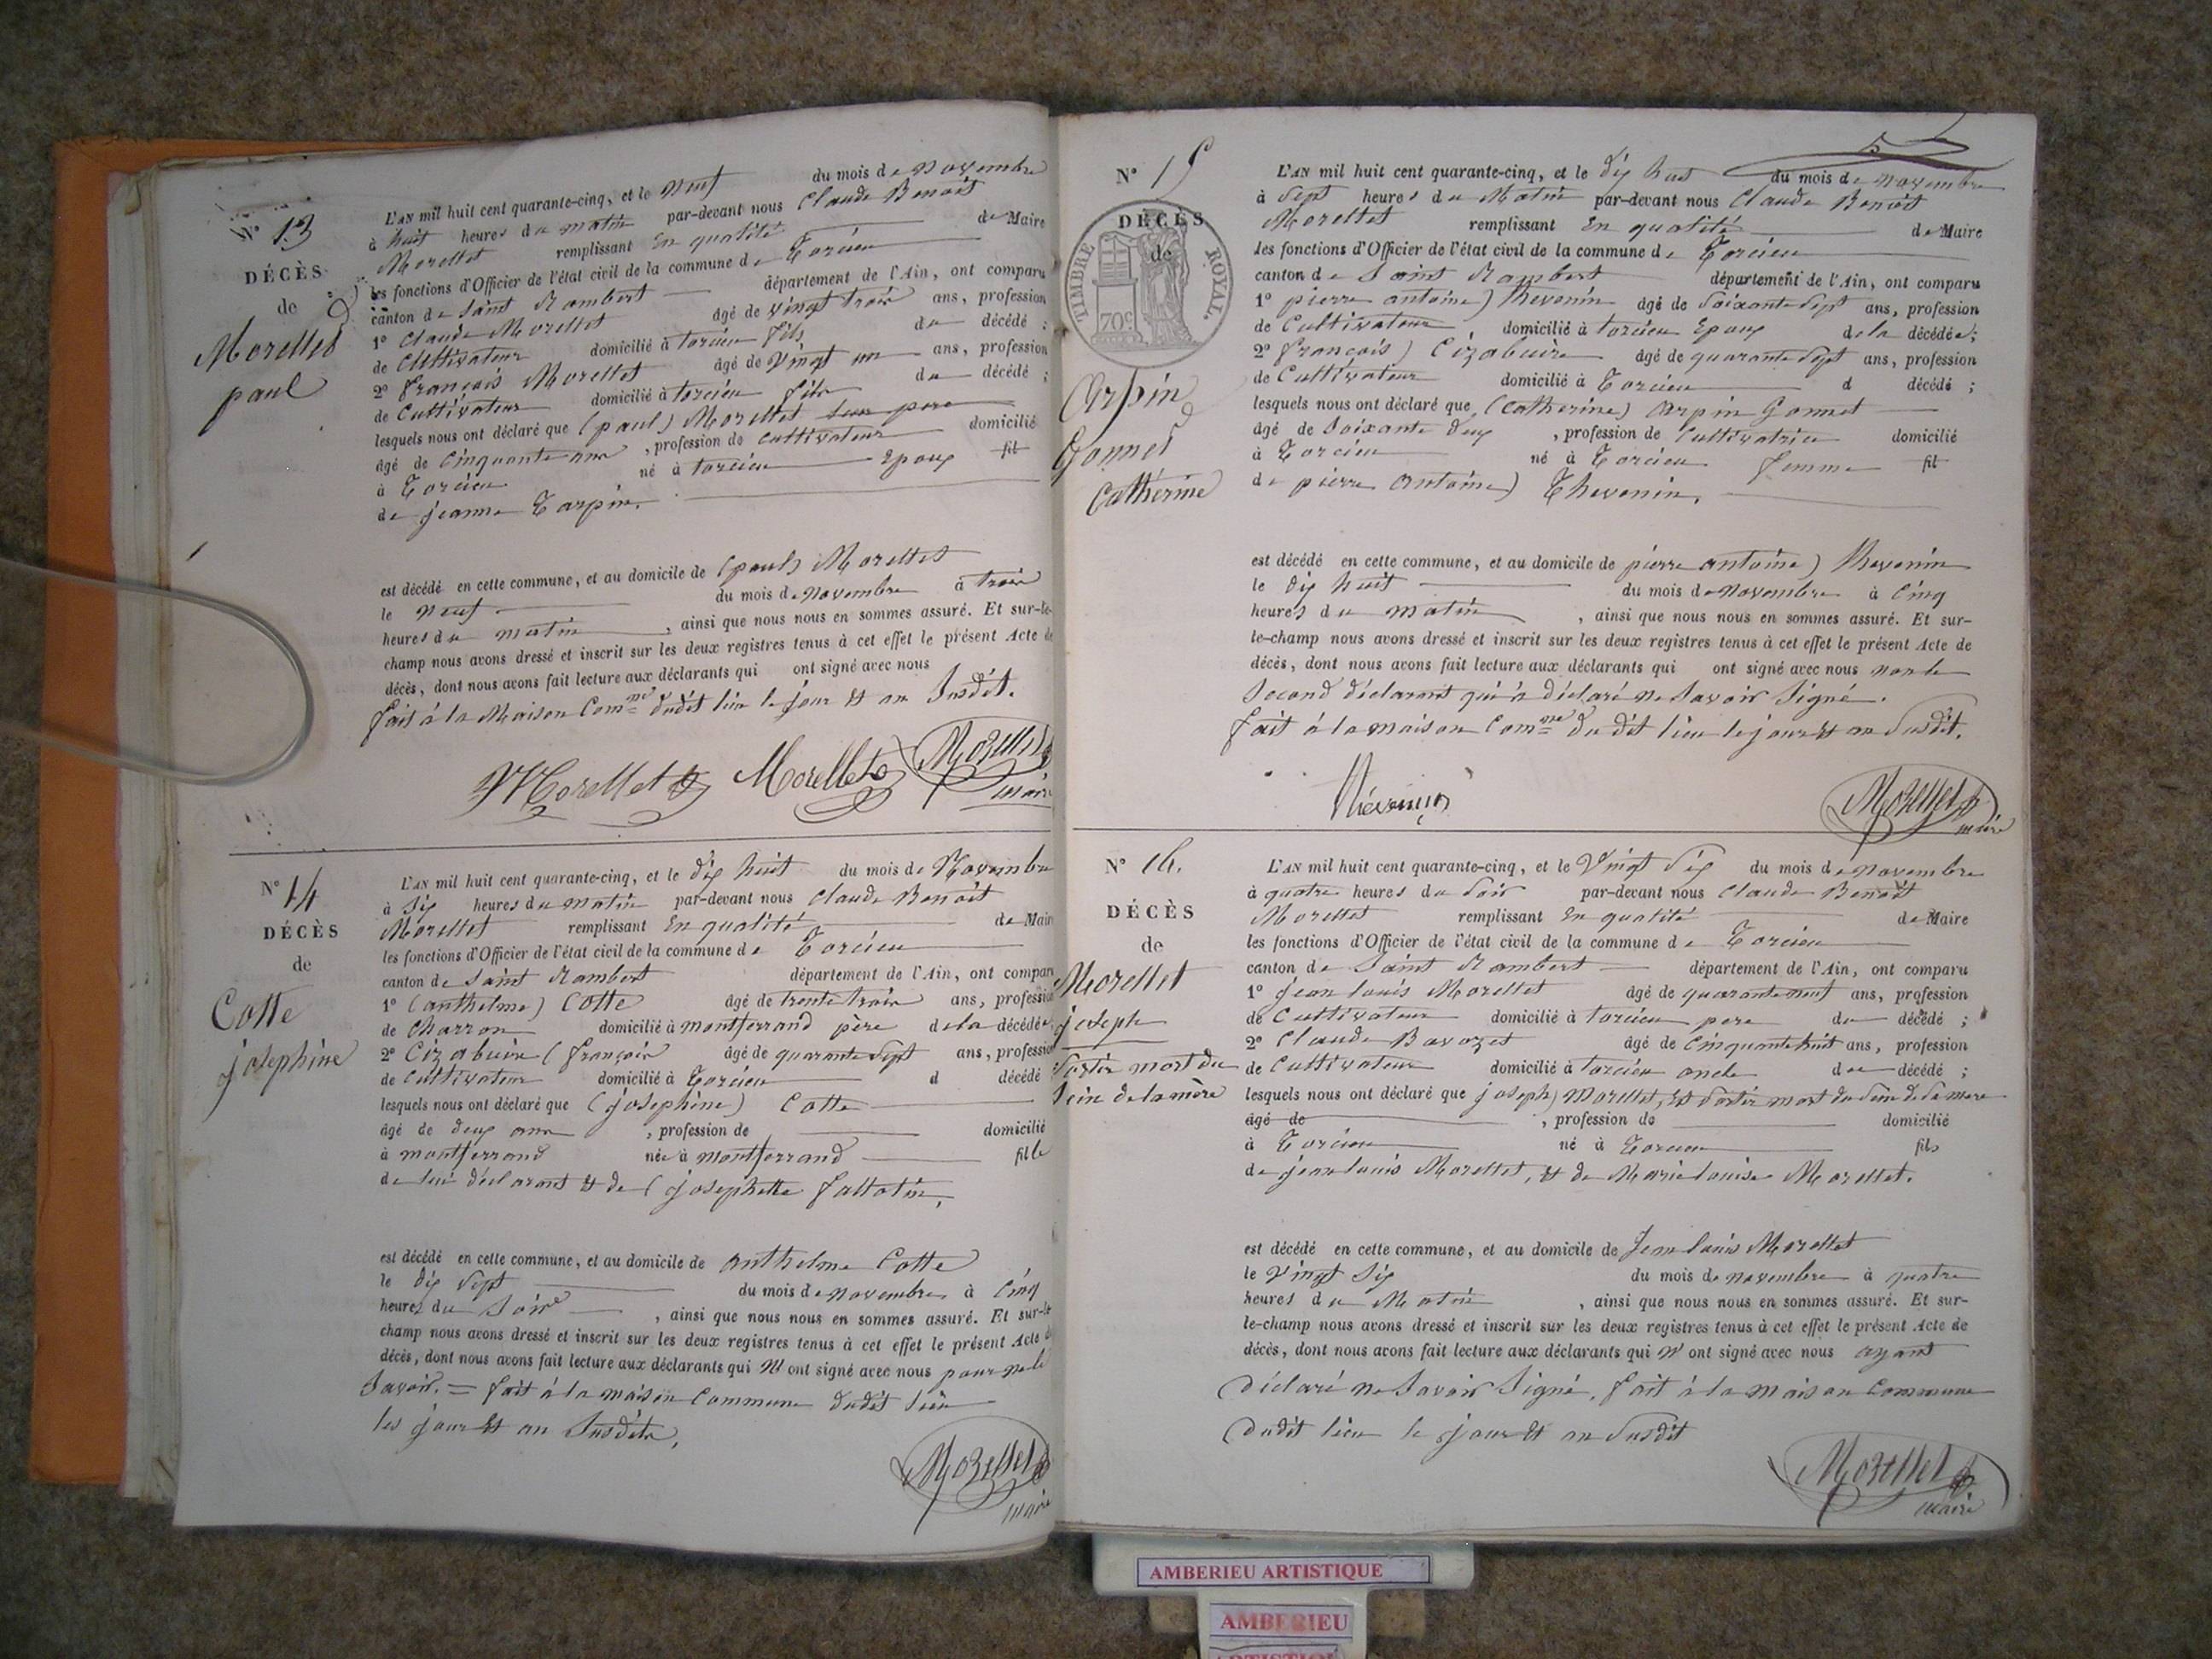 N° 13
DÉCÈS
de
Morellet
paul
L'AN mil huit cent quarante-cinq, et le neuf du mois de novembre
à huit heures du matin par-devant nous Claude Benoit
Morellet remplissant En qualité de Maire
les fonctions d'Officier de l'état civil de la commune de Torcieu
canton de Saint Rambert département de l'Ain, ont comparu
1° Claude Morellet âgé de vingt trois ans, profession
de Cultivateur domicilié à torcieu fils du décédé ;
2° françois Morellet âgé de vingt un ans, profession
de Cultivateur domicilié à torcieu fils du décédé ;
lesquels nous ont déclaré que (paul) Morellet leur pere
âgé de Cinquante ans, profession de cultivateur domicilié
à Torcieu né à torcieu Epoux fil
de jeanne Tarpin.
est décédé en cette commune, et au domicile de (paul) Morellet
le neuf du mois de novembre à trois
heures du matin, ainsi que nous nous en sommes assuré. Et sur-le-
champ nous avons dressé et inscrit sur les deux registres tenus à cet effet le présent Acte de
décès, dont nous avons fait lecture aux déclarants qui ont signé avec nous
fait à la Maison Comme dudit lieu le jour et an Susdit.
Morellet Morellet Morellet
maire
N° 14
DÉCÈS
de
Cotte
josephine
L'AN mil huit cent quarante-cinq, et le dix huit du mois de Novembre
à Six heures du matin par-devant nous Claude Benoit
Morellet remplissant En qualité de Maire
les fonctions d'Officier de l'état civil de la commune de Torcieu
canton de Saint Rambert département de l'Ain, ont comparu
1° (anthelme) Cotte âgé de trente trois ans, profession
de Charron domicilié à montferrand père de la décédée
2° Cizabuire (françois âgé de quarante Sept ans, profession
de Cultivateur domicilié à Torcieu d décédé
lesquels nous ont déclaré que (josephine) Cotte
âgé de deux ans, profession de domicilié
à montferrand née à montferrand fille
de lui déclarant et de (josephette fallatin,
est décédé en cette commune, et au domicile de anthelme Cotte
le dix Sept du mois de novembre à Cinq
heures du Soir, ainsi que nous nous en sommes assuré. Et sur-le-
champ nous avons dressé et inscrit sur les deux registres tenus à cet effet le présent Acte de
décès, dont nous avons fait lecture aux déclarants qui N'ont signé avec nous pour ne le
Savoir. = fait à la maison Commune dudit lieu
les jour et an Susdits,
Morellet
maire
N° 15
DÉCÈS
de
TIMBRE ROYAL.
70c
Arpin
Gonnet
Catherine
L'AN mil huit cent quarante-cinq, et le dix huit du mois de novembre
à Sept heures du Matin par-devant nous Claude Benoit
Morellet remplissant En qualité de Maire
les fonctions d'Officier de l'état civil de la commune de Torcieu
canton de Saint Rambert département de l'Ain, ont comparu
1° pierre antoine) thevenin âgé de Soixante Sept ans, profession
de Cultivateur, domicilié à torcieu Epoux de la décédée ;
2° françois) Cizabuire âgé de quarante Sept ans, profession
de Cultivateur domicilié à Torcieu d décédé ;
lesquels nous ont déclaré que (Catherine) Arpin Gonnet
âgé de Soixante deux, profession de Cultivatrice domicilié
à Torcieu né à Torcieu femme fil
de pierre antoine) Thevenin,
est décédé en cette commune, et au domicile de pierre antoine) thevenin
le dix huit du mois de novembre à Cinq
heures du matin, ainsi que nous nous en sommes assuré. Et sur-
le-champ nous avons dressé et inscrit sur les deux registres tenus à cet effet le présent Acte de
décès, dont nous avons fait lecture aux déclarants qui ont signé avec nous non le
Second déclarant qui a déclaré ne Savoir Signé.
fait à la maison Comme du dit lieu le jour et an Susdit.
Morellet
maire
N° 16.
DÉCÈS
de
Morellet
joseph
Sortir mort du
Sein de la mère
L'AN mil huit cent quarante-cinq, et le Vingt Six du mois de novembre
à quatre heures du Soir par-devant nous Claude Benoit
Morellet remplissant En qualité de Maire
les fonctions d'Officier de l'état civil de la commune de Torcieu
canton de Saint Rambert département de l'Ain, ont comparu
1° jean louis Morellet âgé de quarante neuf ans, profession
de Cultivateur domicilié à torcieu pere du décédé ;
2° Claude Bavozet âgé de Cinquante huit ans, profession
de Cultivateur domicilié à torcieu oncle du décédé ;
lesquels nous ont déclaré que joseph) Morellet, est Sortir mort du Sein de Sa mere
âgé de, profession de domicilié
à Torcieu né à Torcieu fils
de jean louis Morellet, et de Marie louise Morellet.
est décédé en cette commune, et au domicile de Jean louis Morellet
le Vingt Six du mois de novembre à quatre
heures du Matin, ainsi que nous nous en sommes assuré. Et sur-
le-champ nous avons dressé et inscrit sur les deux registres tenus à cet effet le présent Acte de
décès, dont nous avons fait lecture aux déclarants qui N'ont signé avec nous ayant
Déclaré ne Savoir Signé, fait à la maison Commune
Dudit lieu le jour et an Susdit
Morellet
maire
AMBERIEU ARTISTIQUE
AMBERIEU
ARTISTIQUE